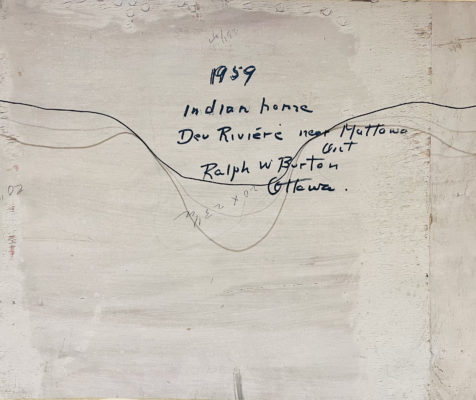 1959
Indian home
Deu Riviéré near Mattawa
Ont
Ralph W Burton
Ottawa.
20 x 23
20